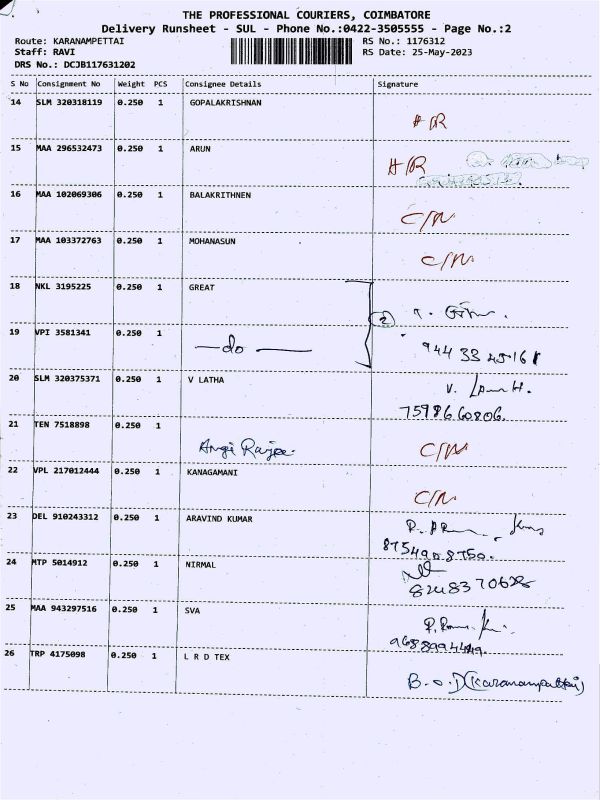 THE PROFESSIONAL COURIERS, COIMBATORE
Delivery Runsheet - SUL - Phone No.:0422-3505555 - Page No.:2
Route: KARANAMPETTAI RS No.: 1176312
Staff: RAVI RS Date: 25-May-2023
DRS No.: DCJB117631202
S No Consignment No Weight PCS Consignee Details Signature
14 SLM 320318119 0.250 1 GOPALAKRISHNAN
15 MAA 296532473 0.250 1 ARUN
16 MAA 102069306 0.250 1 BALAKRITHNEN
C/N
17 MAA 103372763 0.250 1 MOHANASUN
C/N
18 NKL 3195225 0.250 1 GREAT
2
19 VPI 3581341 0.250 1
do
20 SLM 320375371 0.250 1 V LATHA
21 TEN 7518898 0.250 1
C/N
22 VPL 217012444 0.250 1 KANAGAMANI
C/N
23 DEL 910243312 0.250 1 ARAVIND KUMAR
24 MTP 5014912 0.250 1 NIRMAL
25 MAA 943297516 0.250 1 SVA
26 TRP 4175098 0.250 1 L R D TEX
(Karanampattai)